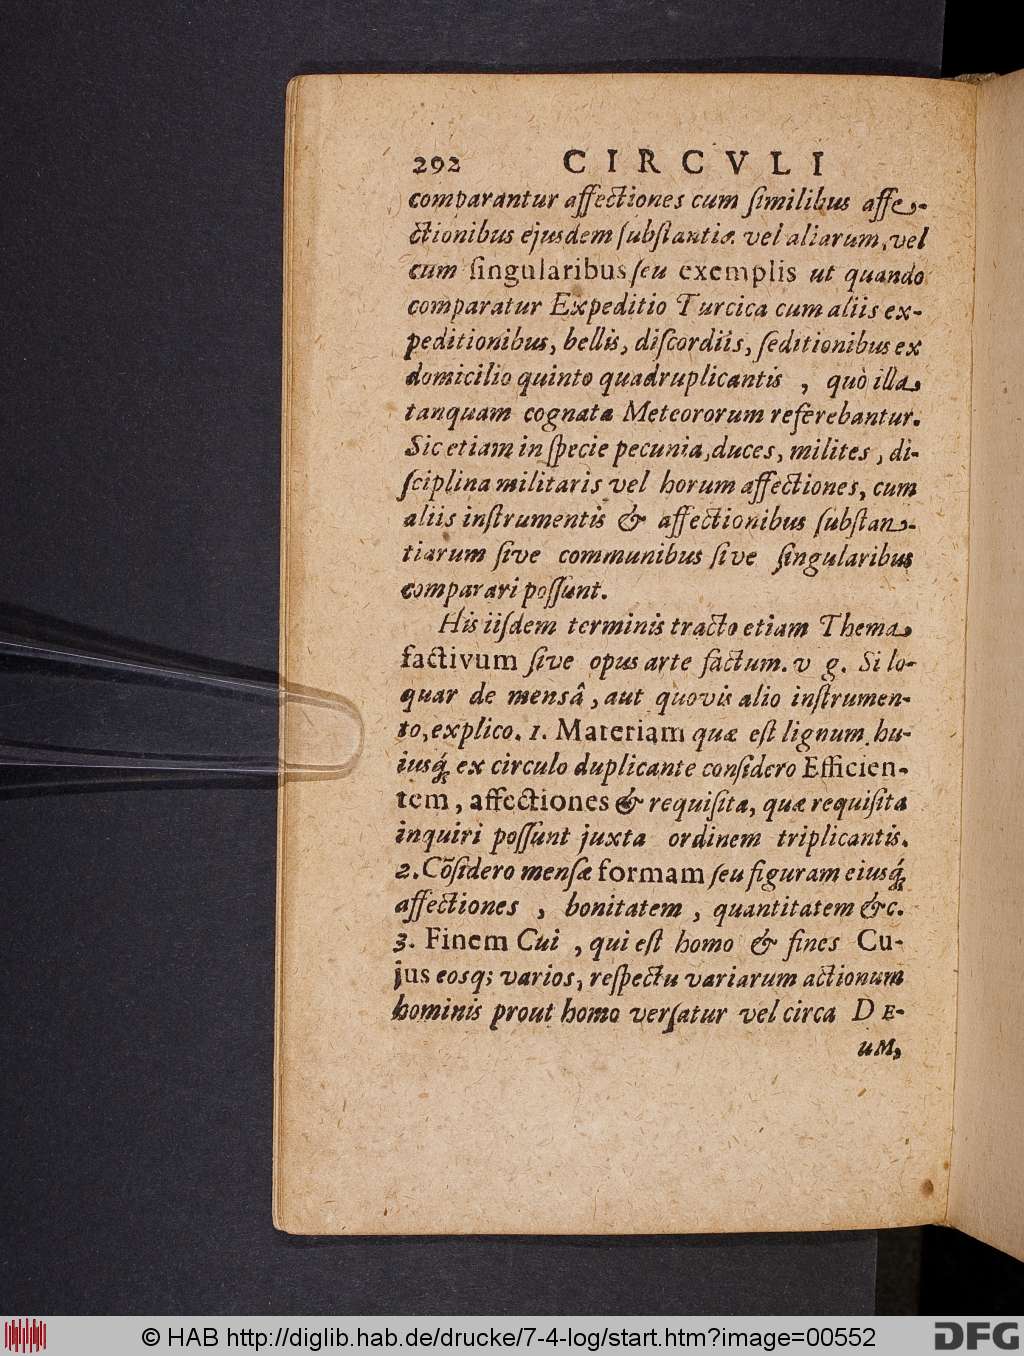 292 CIRCVLI
comparantur affectiones cum ſimilibus affe-
ctionibus ejusdem ſubſtantiæ vel aliarum, vel
cum ſingularibus ſeu exemplis ut quando
comparatur Expeditio Turcica cum aliis ex-
peditionibus, bellis, diſcordiis, ſeditionibus ex
domicilio quinto quadruplicantis , quò illa
tanquam cognata Meteororum referebantur.
Sic etiam in ſpecie pecunia, duces, milites, di-
ſciplina militaris vel horum affectiones, cum
aliis inſtrumentis & affectionibus ſubſtan-
tiarum ſive communibus ſive ſingularibus
comparari poſſunt.
His iiſdem terminis tracto etiam Thema
factivum ſive opus arte factum. v g. Si lo-
quar de mensâ, aut quovis alio inſtrumen-
to, explico. 1. Materiam quæ eſt lignum, hu-
iusq́; ex circulo duplicante conſidero Efficien-
tem, affectiones & requiſita, quæ requiſita
inquiri poſſunt juxta ordinem triplicantis.
2. Cõſidero menſæ formam ſeu figuram eiusq́;
affectiones , bonitatem , quantitatem &c.
3. Finem Cui , qui eſt homo & fines Cu-
jus eosq; varios, reſpectu variarum actionum
hominis prout homo verſatur vel circa DE-
uM,
© HAB http://diglib.hab.de/drucke/7-4-log/start.htm?image=00552
DFG